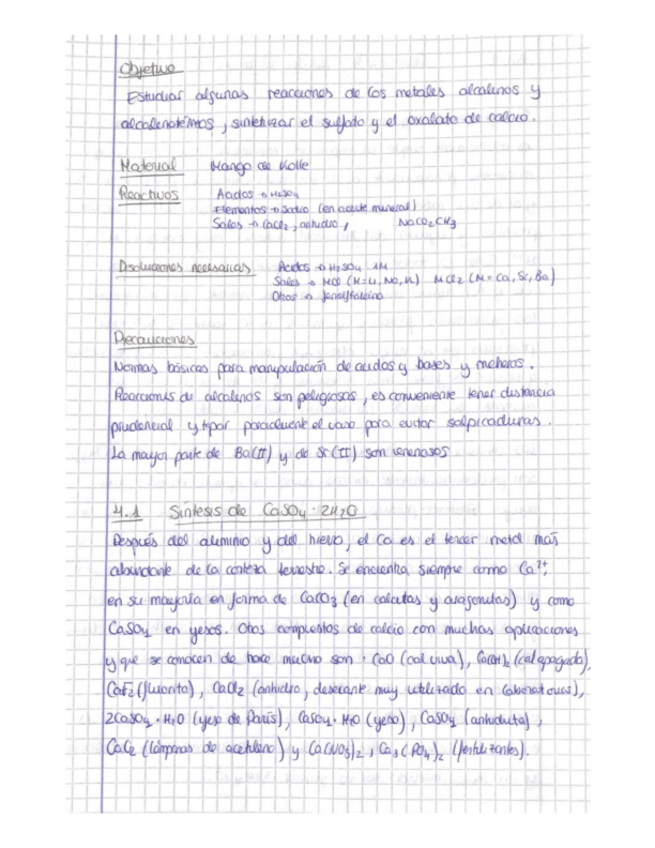 Objetivo
Estudiar algunas reacciones de los metales alcalinos y
alcalenotérreos, sintetizar el sulfato y el oxalato de calcio.
Material Mango de Kolle
Reactivos Acidos → H2SO4
Elementos → Sodio (en aceite mineral)
Sales → CaCl2, anhidro, NaCO2CH3
Disoluciones necesarias Acidos → H2SO4 1M
Sales → MCl (M=Li, Na, K) MCl2 (M=Ca, Sr, Ba)
Otros → fenolftaleina
Precauciones
Normas básicas para manipulación de acidos y bases y mecheros.
Reacciones de alcalinos son peligrosas, es conveniente tener distancia
prudencial y tapar parcialmente el vaso para evitar salpicaduras.
La mayor parte de Ba(II) y de Sr(II) son venenosos
4.1 Síntesis de CaSO4·2H2O
Después del aluminio y del hierro, el Ca es el tercer metal más
abundante de la corteza terrestre. Se encuentra siempre como Ca2+,
en su mayoría en forma de CaCO3 (en calcitas y aragonitas) y como
CaSO4 en yesos. Otros compuestos de calcio con muchas aplicaciones
y que se conocen de hace mucho son: CaO (cal viva), Ca(OH)2 (cal apagada),
CaF2 (fluorita), CaCl2 (anhidro, desecante muy utilizado en laboratorios),
2CaSO4·H2O (yeso de París), CaSO4·H2O (yeso), CaSO4 (anhidrita),
CaC2 (lámparas de acetileno) y Ca(NO3)2, Ca3(PO4)2 (fertilizantes).